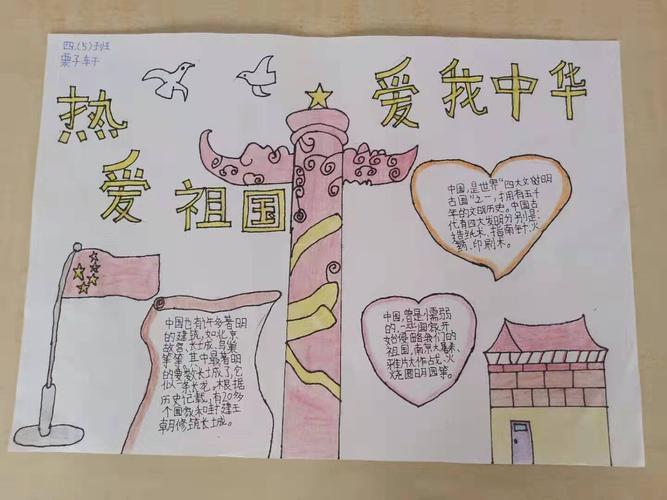 四.(5)班
栗子轩
热爱祖国
爱我中华
中国,是世界“四大文明
古国”之一,拥有五千
年的文成历史。中国古
代有四大发明分别是:
造纸术、指南针、火
药、印刷术。
中国,曾是懦弱
的,一些国家开
始侵略我们的
祖国,南京大屠杀、
鸦片大作战、火
烧圆明园等。
中国也有许多著明
的建筑,如北京
故宫、长城、鸟巢
等等,其中最著明
的要数长城了,它
似一条长龙。根据
历史记载,有20多
个国家和封建王
朝修筑长城。